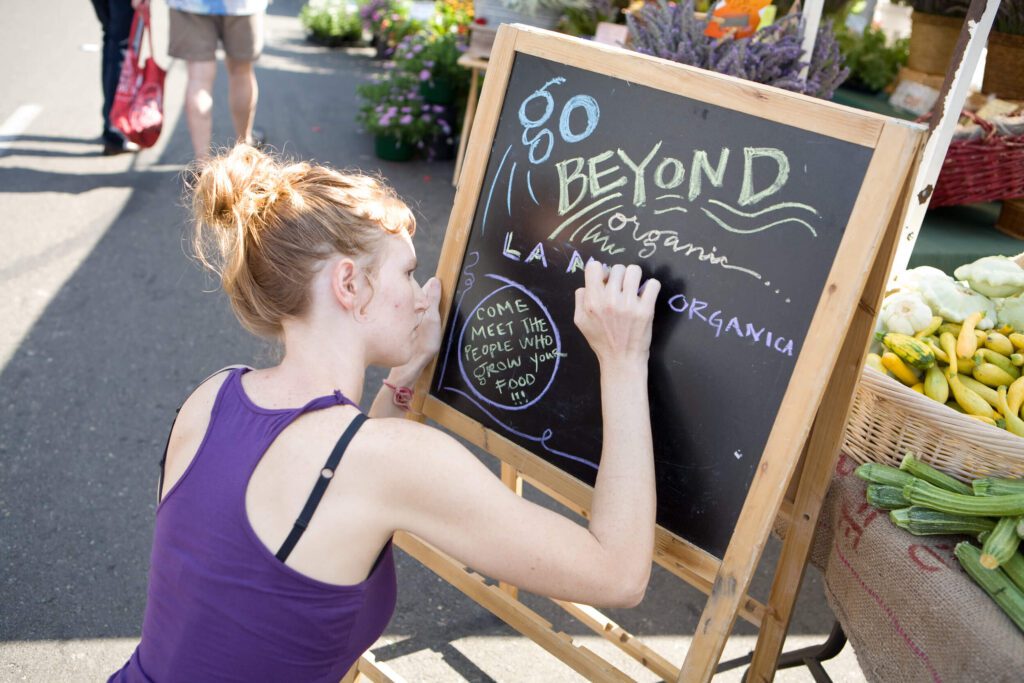 go
BEYOND
organic
LA ORGANICA
COME
MEET THE
PEOPLE WHO
grow your
FOOD
!!!